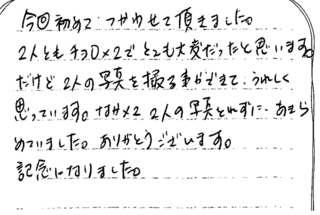 今回初めてつかわせて頂きました。
2人ともチョロ×2でとても大変だったと思います。
だけど2人の写真を撮る事ができて、うれしく
思っています。なか×2 2人の写真とれずに、あきら
めていました。ありがとうございます。
記念になりました。